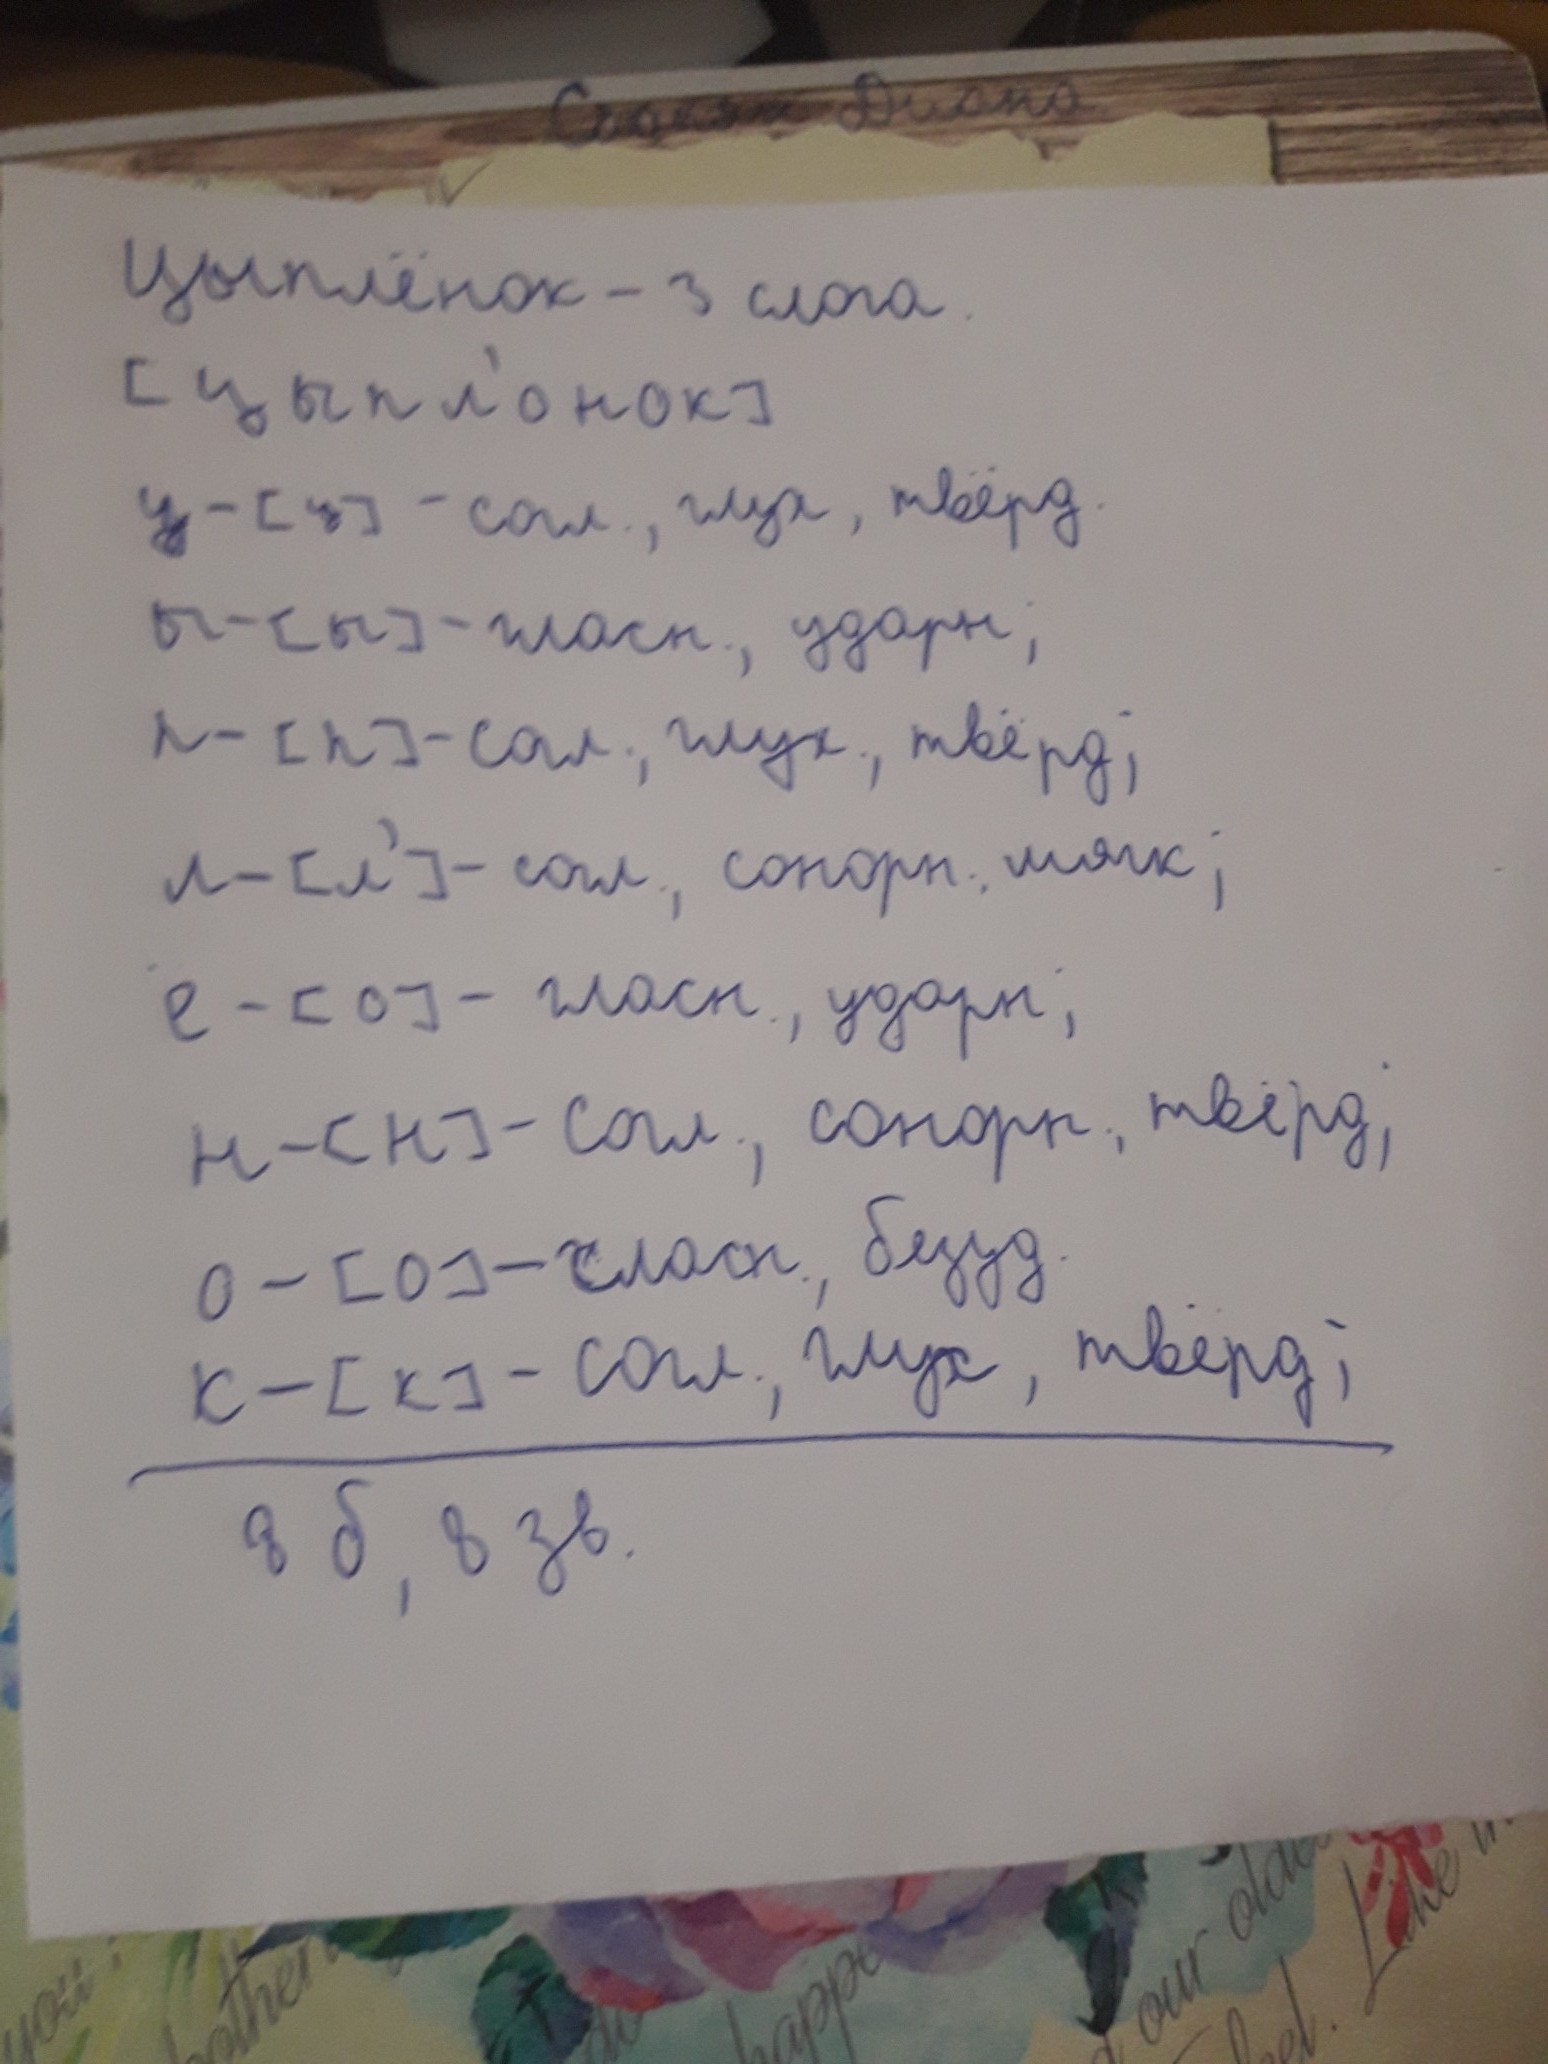 Диана
Цыплёнок – 3 слога.
[цыпл'онок]
ц – [ц] – согл., глух, твёрд.
ы – [ы] – гласн., ударн;
п – [п] – согл., глух., твёрд;
л – [л'] – согл., сонорн., мягк;
ё – [о] – гласн., ударн;
н – [н] – согл., сонорн., твёрд;
о – [о] – гласн., безуд.
к – [к] – согл., глух, твёрд;
8 б, 8 зв.
you
bother
do
happy
our older
feel. Like